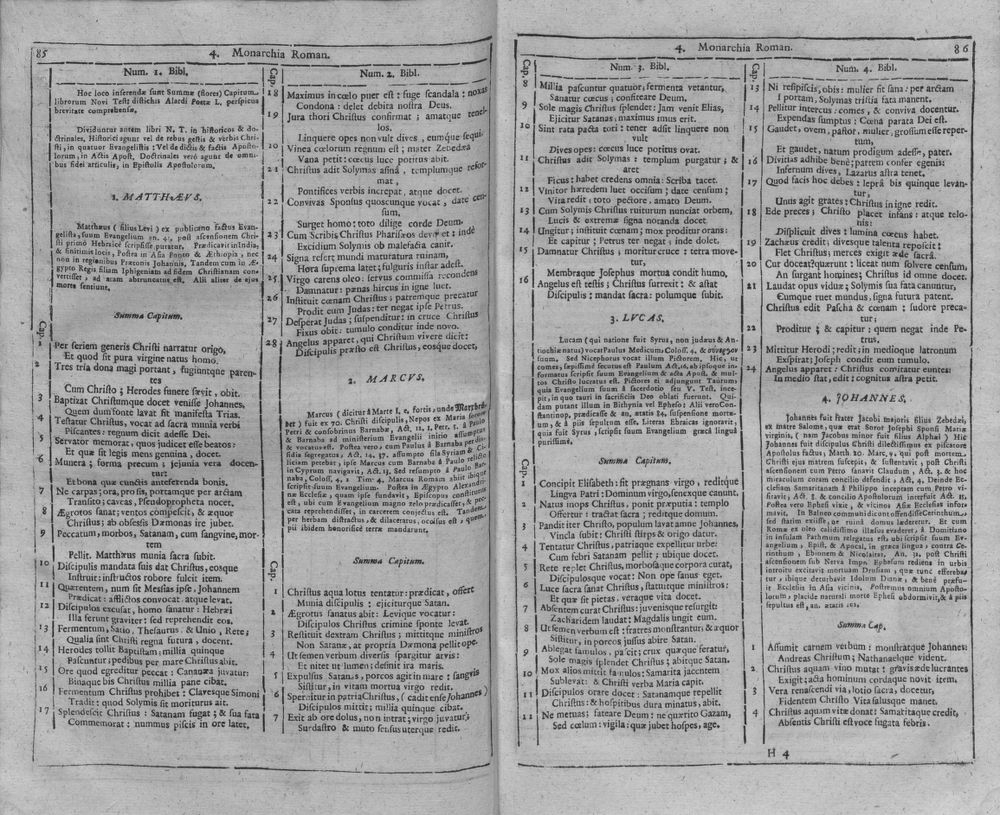 85
4. Monarchia Roman.
Num. 1. Bibl.
Hoc loco inserendæ sunt Summæ (flores) Capitum
librorum Novi Test distichis Alardi Poetæ L. perspicua
brevitate comprehensæ.
Dividuntur autem libri N. T. in historicos & do-
ctrinales. Historici agunt vel de rebus gestis & verbis Chri-
sti, in quatuor Evangelistis: Vel de dictis & factis Aposto-
lorum, in Actis Apost. Doctrinales verò agunt de omni-
bus fidei articulis, in Epistolis Apostolorum.
1. MATTHÆUS.
Matthæus (filius Levi) ex publicano factus Evan-
gelista, suum Evangelium an. 41, post ascensionem Chri-
sti primò Hebraicè scripsisse putatur. Prædicavit in India,
& finitimis locis, Postea in Asia Ponto & Æthiopia, nec
non in regionibus Præconis Johannis, Tandem cum in Æ-
gypto Regis filiam Iphigeniam ad fidem Christianam con-
vertisset, ad aram obtruncatus est. Alii aliter de ejus
morte sentiunt.
Summa Capitum.
Cap.
1 Per seriem generis Christi narratur origo,
Et quod sit pura virgine natus homo.
2 Tres tria dona magi portant, fugiuntque paren-
tes
Cum Christo; Herodes funere sævit, obit.
3 Baptizat Christumque docet venisse Johannes,
Quem dum fonte lavat fit manifesta Trias.
4 Testatur Christus, vocat ad sacra munia verbi
Piscantes: regnum dicit adesse Dei.
5 Servator memorat, quos judicet esse beatos:
Et quæ sit legis mens genuina, docet.
6 Munera; forma precum; jejunia vera docen-
tur:
Et bona quæ cunctis anteferenda bonis.
7 Ne carpas; ora, pro sis, portamque per arctam
Transito; caveas, Pseudopropheta nocet.
8 Ægrotos sanat; ventos compescit, & æquor
Christus; ab obsessis Dæmonas ire jubet.
9 Peccatum, morbos, Satanam, cum sangvine, mor-
tem
Pellit. Matthæus munia sacra subit.
10 Discipulis mandata suis dat Christus, eosque
Instruit: instructos robore fulcit item.
11 Quærentem, num sit Messias ipse, Johannem
Prædicat: afflictos convocat atque levat.
12 Discipulos excusat, homo sanatur: Hebræi
Illa serunt graviter: sed reprehendit eos.
13 Fermentum, Satio, Thesaurus & Unio, Rete;
Qualia sint Christi regna futura, docent.
14 Herodes tollit Baptistam; millia quinque
Pascuntur; pedibus per mare Christus abit.
15 Ore quod egreditur peccat: Cananæa juvatur:
Binaque bis Christus millia pane cibat.
16 Fermentum Christus prohibet: Clavesque Simoni
Tradit: quod Solymis sit moriturus ait.
17 Splendescit Christus: Satanam fugat; & sua fata
Commemorat: nummus piscis in ore latet.
Cap.
Num. 2. Bibl.
18 Maximus in cœlo puer est: fuge scandala: noxas
Condona: delet debita nostra Deus.
19 Jura thori Christus confirmat; amatque tenel-
los.
Linquere opes non vult dives, eumque sequi.
20 Vinea cœlorum regnum est; mater Zebedæa
Vana petit: cœcus luce potitus abit.
21 Christus adit Solymas asinâ, templumque refor-
mat,
Pontifices verbis increpat, atque docet.
22 Convivas Sponsus quoscunque vocat, date cen-
sum,
Surget homo: toto dilige corde Deum.
23 Cum Scribis Christus Pharisæos devovet: inde
Excidium Solymis ob malefacta canit.
24 Signa refert mundi maturatura ruinam,
Hora suprema latet; fulguris instar adest.
25 Virgo carens oleo: servus commissa recondens
Damnatur: pœnas hircus in igne luet.
26 Instituit cœnam Christus; patremque precatur
Prodit eum Judas: ter negat ipse Petrus.
27 Desperat Judas; suspenditur: in cruce Christus
Fixus obit: tumulo conditur inde novo.
28 Angelus apparet, qui Christum vivere dicit:
Discipulis præsto est Christus, eosque docet,
2. MARCUS.
Marcus (dicitur à Marte i. e. fortis; unde Marthre-
ber) fuit ex 70. Christi discipulis, Nepos ex Maria sorore
Petri & consobrinus Barnabæ, Act. 12, 1 Petr. 5. à Paulo
& Barnaba ad ministerium Evangelii initio assumptus
& vocatus est. Postea vero, cum Paulus à Barnaba per dis-
sidia segregatus, Act. 14, 37. assumpto sila Syriam & Ci-
liciam petebat, ipse Marcus cum Barnaba à Paulo relictus
in Cyprum navigavit, Act. 15, Sed assumpto à Paulo Bar-
naba, Coloss, 4, 2 Tim- 4. Marcus Romam abiit ibique
scripsit suum Evangelium. Postea in Ægypto Alexandri-
næ Ecclesiæ, quam ipse fundavit, Episcopus constitutus
est, ubi cum Evangelium magno zelo prædicasset, & pec-
cata reprehendisset, in carcerem conjectus est. Tandem
per herbam distractus, & dilaceratus, occisus est, quem-
pii ibidem honorificè terræ mandarunt.
Summa Capitum.
Cap.
1 Christus aqua lotus tentatur: prædicat, offert
Munia discipulis: ejiciturque Satan.
2 Ægrotus sanatus abit: Levique vocatur:
Discipulos Christus crimine sponte levat.
3 Restituit dextram Christus; mittitque ministros
Non Satanæ, at propria Dæmona pellit ope.
4 Ut semen verbum diversis spargitur arvis:
Et nitet ut lumen; definit ira maris.
5 Expulsus Satanas, porcos agit in mare: sangvis
Sistitur, in vitam mortua virgo redit.
6 Spernitur in patria Christus, (cadit ense Johannes)
Discipulos mittit; millia quinque cibat.
7 Exit ab ore dolus, non intrat; virgo juvatur;
Surdastro & muto sensus uterque redit.
Cap.
4. Monarchia Roman.
86
Num. 3. Bibl.
8 Millia pascuntur quatuor; fermenta vetantur,
Sanatur cœcus; confiteare Deum.
9 Sole magis Christus splendet: Jam venit Elias,
Ejicitur Satanas; maximus imus erit.
10 Sint rata pacta tori: tener adsit linquere non
vult
Dives opes: cœcus luce potitus ovat.
11 Christus adit Solymas: templum purgatur; &
aret
Ficus: habet credens omnia: Scriba tacet.
12 Vinitor hæredem luet occisum; date censum;
Vita redit: toto pectore, amato Deum.
13 Cum Solymis Christus ruiturum nunciat orbem,
Lucis & extremæ signa notanda docet.
14 Ungitur; instituit cœnam; mox proditur orans:
Et capitur; Petrus ter negat; inde dolet.
15 Damnatur Christus; moritur cruce: terra move-
tur,
Membraque Josephus mortua condit humo,
16 Angelus est testis; Christus surrexit: & astat
Discipulis: mandat sacra: polumque subit.
3. LVCAS.
Lucam (qui natione fuit Syrus, non judæus & An-
tiochiæ natus) vocat Paulus Medicum; Coloss. 4. & σύνεργον
suum, Sed Nicephorus vocat illum Pictorem, Hic, ut
comes, sæpissimè secutus est Paulum, Act. 16, ab ipsoque in-
formatus scripsit suum Evangelium & acta Apost. & mul-
tos Christo lucratus est. Pictores ei adjungunt Taurum;
quia Evangelium suum à sacerdotio seu V. Test. ince-
pit, in quo tauri in sacrificiis Deo oblati fuerunt. Qui-
dam putant illum in Bithynia vel Epheso: Alii vero Con-
stantinop, prædicasse & an. ætatis 84, suspensum mortu-
um, & à piis sepultum esse. Literas Ebraicas ignoravit,
quia fuit Syrus, scripsit suum Evangelium græcâ linguâ
purissimè.
Summa Capitum.
Cap.
1 Concipit Elisabeth: sit prægnans virgo, reditque
Lingva Patri: Dominum virgo, senexque canunt.
2 Natus inops Christus, ponit præputia: templo
Offertur: tractat sacra; reditque domum.
3 Pandit iter Christo, populum lavat amne Johannes,
Vincla subit: Christi stirps & origo datur.
4 Tentatur Christus, patriaque expellitur urbe:
Cum febri Satanam pellit; ubique docet.
5 Rete replet Christus, morbosaque corpora curat,
Discipulosque vocat: Non ope sanus eget.
6 Luce sacra sanat Christus, statuitque ministros:
Et quæ sit pietas, veraque vita docet.
7 Absentem curat Christus: juvenisque resurgit:
Zachariidem laudat: Magdalis lingit eum.
8 Ut semen verbum est: fratres monstrantur: & æquor
Sistitur, in porcos jussus abire Satan.
9 Ablegat famulos, pascit; crux quæque feratur,
Sole magis splendet Christus; abitque Satan.
10 Mox alios mittit famulos: Samarita jacentem
Sublevat: & Christi verba Maria capit.
11 Discipulos orare docet: Satanamque repellit
Christus: & hospitibus dura minatus, abit.
12 Ne metuas; fateare Deum: ne quærito Gazam,
Sed cœlum: vigila: quæ jubet hospes, age.
Num. 4. Bibl.
13 Ni resipiscis, obis: mulier fit sana: per arctam
I portam, Solymas tristia fata manent.
14 Pellitur intercus: comes, & conviva docentur.
Expendas sumptus: Cœna parata Dei est.
15 Gaudet, ovem, pastor, mulier, grossum esse reper-
tum,
Et gaudet, natum prodigum adesse, pater.
16 Divitias adhibe bene; partem confer egenis:
Infernum dives, Lazarus astra tenet,
17 Quod facis hoc debes: leprâ bis quinque levan-
tur,
Unus agit grates: Christus in igne redit.
18 Ede preces; Christo placet infans: atque telo-
nius:
Displicuit dives: lumina cœcus habet.
19 Zachæus credit; divesque talenta reposcit:
Flet Christus; merces exigit æde sacrâ.
20 Cur doceat? quærunt: liceat num solvere censum,
An surgant homines; Christus id omne docet.
21 Laudat opus viduæ; Solymis sua fata canuntur,
Eumque ruet mundus, signa futura patent.
22 Christus edit Pascha & cœnam: sudore preca-
tur;
Proditur; & capitur: quem negat inde Pe-
trus.
23 Mittitur Herodi; redit; in medioque latronum
Exspirat; Joseph condit eum tumulo.
24 Angelus apparet: Christus comitatur euntes:
In medio stat, edit: cognitus astra petit.
4. JOHANNES.
Johannes fuit frater Jacobi majoris filius Zebedæi,
ex matre Salome, quæ erat Soror Josephi Sponsi Mariæ
virginis, (nam Jacobus minor fuit filius Alphæi) Hic
Johannes fuit discipulus Christi dilectissimus ex piscatore
Apostolus factus, Matth. 20. Marc, 9, qui post mortem,
Christi ejus matrem suscepit, & sustentavit, post Christi
ascensionem cum Petro sanavit Claudum, Act, 3, & hoc
miraculum coram concilio defendit, Act, 4, Deinde Ec-
clesiam Samaritanam à Philippo inceptam cum Petro vi-
sitavit, Act, 8. & concilio Apostolorum interfuit Act, 15,
Postea vero Ephesi vixit, & vicinos Asiæ Ecclesias infor-
mavit. In Balneo communi dicunt offendisse Cerinthum,
sed statim exiisse, ne ruinâ domus læderetur. Et cum
Romæ ex oleo calidissimo illæsus evaderet, à Domitiano
in insulam Pathmum relegatus est, ubi scripsit suum Ev-
angelium, Epist. & Apocal, in græca lingua, contra Ce-
rinthum, Ebionem & Nicolaitas, An. 32, post Christi
ascensionem sub Nerva Imp. Ephesum rediens in urbis
introitu excitavit mortuam Drusiam, quæ tunc efferebat-
tur, ibique deturbavit Idolum Dianæ, & benè præfu-
it Ecclesiis in Asia vicinis, Postremus omnium Aposto-
lorum, placide naturali morte Ephesi obdormivit, & à piis
sepultus est, an. ætatis 101,
Summa Cap.
1 Assumit carnem verbum: monstratque Johannes:
Andreas Christum; Nathanaelque vident.
2 Christus aquam vino mutat: gravis æde lucrantes
Exigit; acta hominum cordaque novit item.
3 Vera renascendi via, lotio sacra, docetur,
Fidentem Christo Vita salusque manet.
4 Christus aquam vitæ donat: Samaritaque credit,
Absentis Christi est voce fugata febris.
H 4